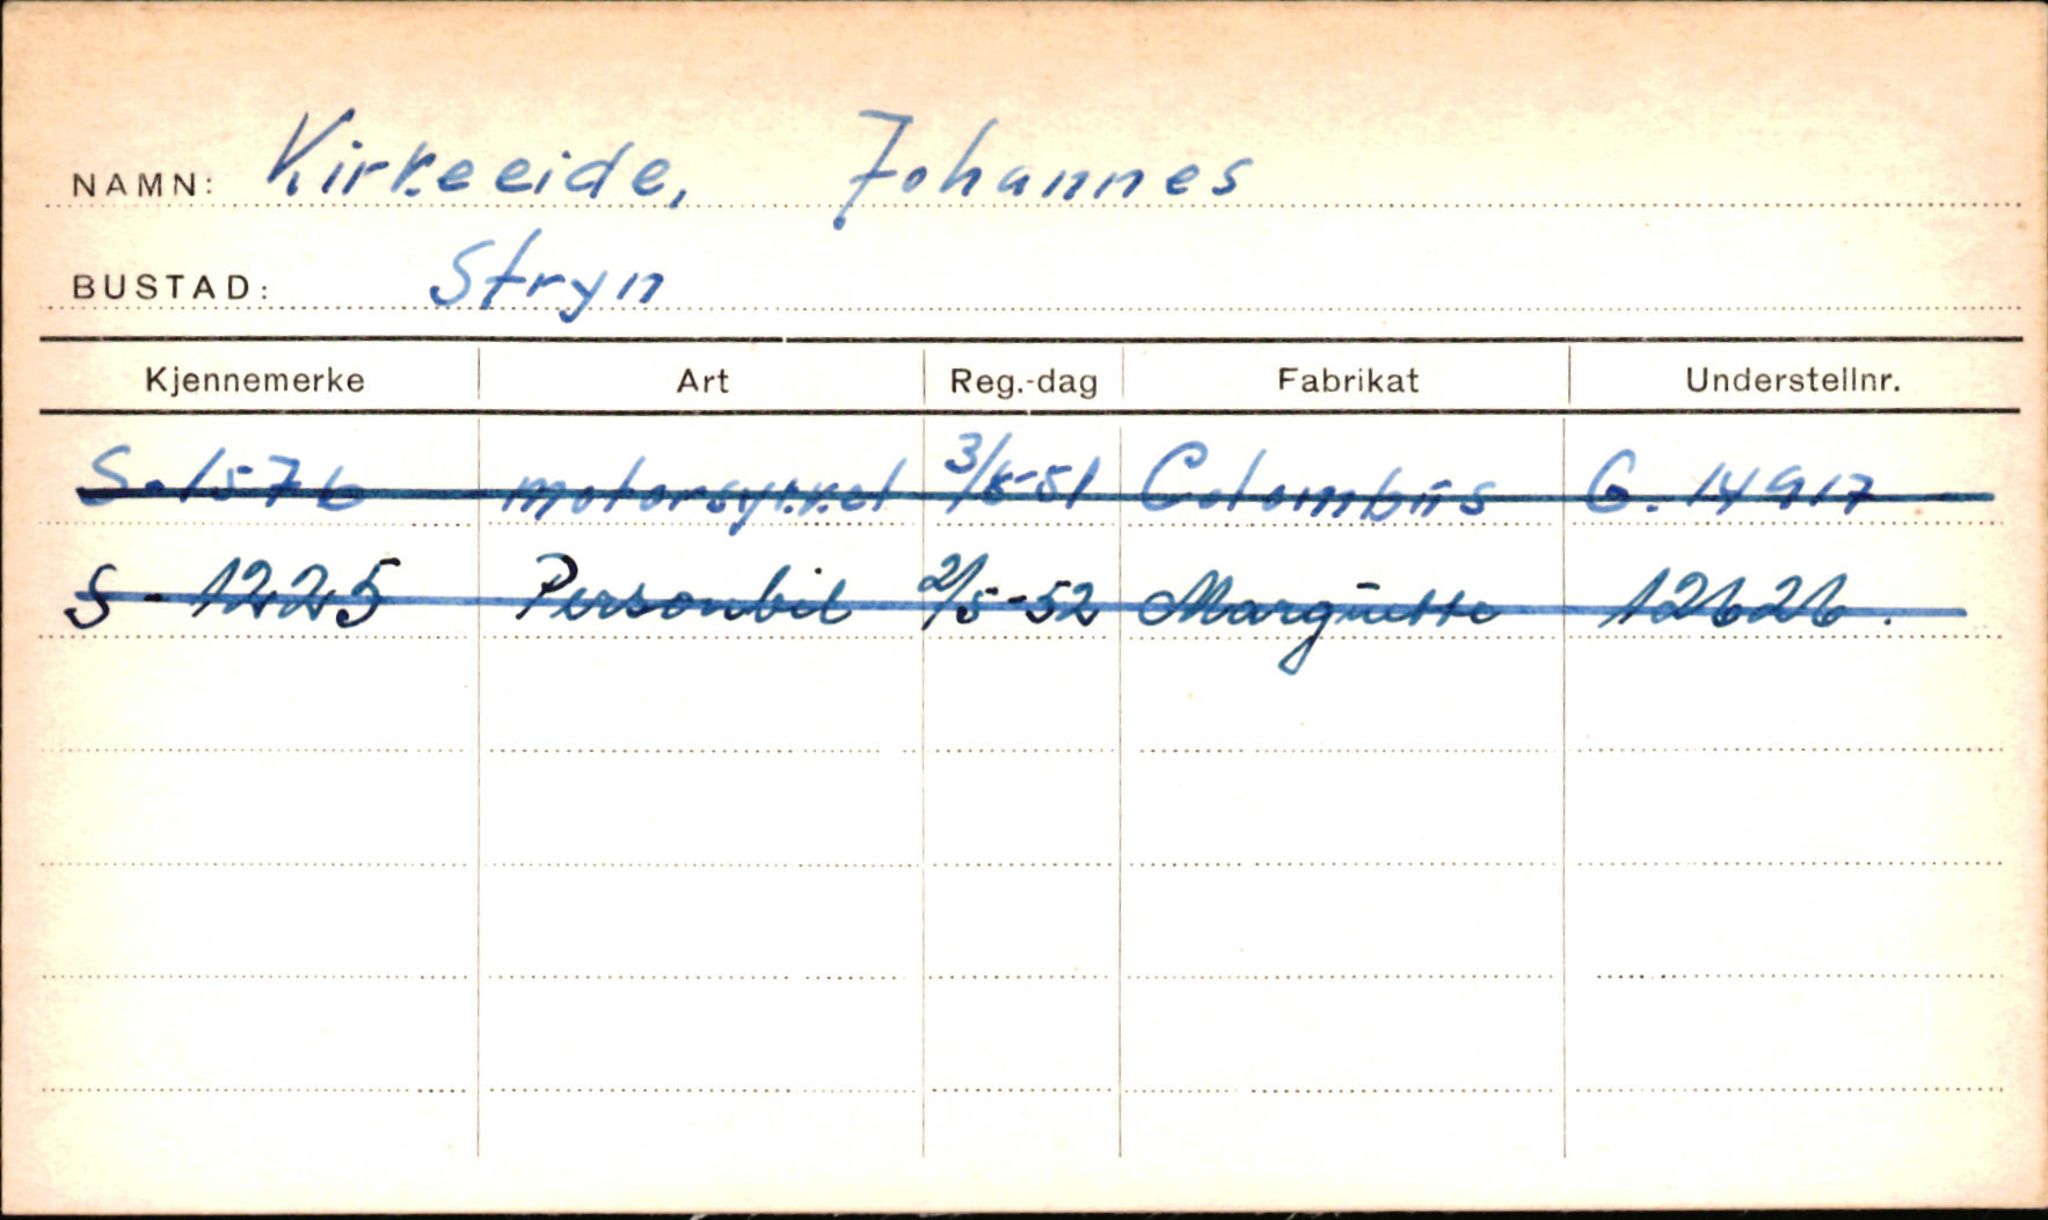 NAMN: Kirkeeide, Johannes
BUSTAD: Stryn
Kjennemerke Art Reg.-dag Fabrikat Understellnr.
S-1576 motorsykkel 3/8-51 Columbus G. 14917
S-1225 Personbil 2/5-52 Marquette 12626.